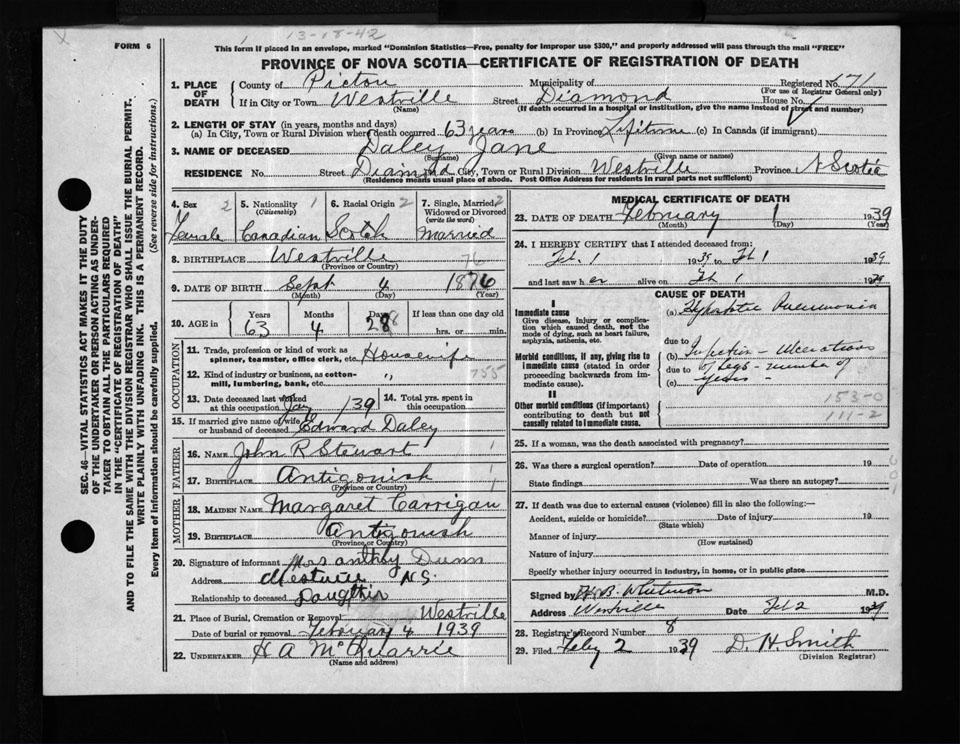 13-18-42
FORM 6
This form if placed in an envelope, marked "Dominion Statistics—Free, penalty for improper use $300," and properly addressed will pass through the mail "FREE"
PROVINCE OF NOVA SCOTIA—CERTIFICATE OF REGISTRATION OF DEATH
1. PLACE OF DEATH County of Pictou Municipality of Registered No. 671
(For use of Registrar General only)
If in City or Town Westville Street Diamond House No.
(Name) (If death occurred in a hospital or institution, give the name instead of street and number)
2. LENGTH OF STAY (in years, months and days)
(a) In City, Town or Rural Division where death occurred 63 years (b) In Province Lifetime (c) In Canada (if immigrant)
3. NAME OF DECEASED Daley Jane
(Surname) (Given name or names)
RESIDENCE No. Street Diamond City, Town or Rural Division Westville Province N Scotia
(Residence means usual place of abode. Post Office Address for residents in rural parts not sufficient)
4. Sex 2 Female
5. Nationality 1 (Citizenship) Canadian
6. Racial Origin 2 Scotch
7. Single, Married, 2 Widowed or Divorced (write the word) Married
8. BIRTHPLACE Westville
(Province or Country) 76
9. DATE OF BIRTH Sept 4 1876
(Month) (Day) (Year)
10. AGE in Years 63 Months 4 Days 28 If less than one day old
hrs. or min.
OCCUPATION
11. Trade, profession or kind of work as spinner, teamster, office clerk, etc. Housewife
12. Kind of industry or business, as cotton-mill, lumbering, bank, etc. " 755
13. Date deceased last worked at this occupation Jan /39 14. Total yrs. spent in this occupation
15. If married give name of wife or husband of deceased Edward Daley
FATHER
16. NAME John R Stewart
17. BIRTHPLACE Antigonish
(Province or Country)
MOTHER
18. MAIDEN NAME Margaret Carrigan
19. BIRTHPLACE Antigonish
(Province or Country)
20. Signature of informant Mrs Dunn
Address Westville N.S.
Relationship to deceased Daughter
21. Place of Burial, Cremation or Removal Westville
Date of burial or removal February 4 1939
22. UNDERTAKER H A
(Name and address)
MEDICAL CERTIFICATE OF DEATH
23. DATE OF DEATH February 1 1939
(Month) (Day) (Year)
24. I HEREBY CERTIFY that I attended deceased from:
Feb. 1 1939 to Feb 1 1939
and last saw her alive on Feb 1 1939
CAUSE OF DEATH
I
Immediate cause
Give disease, injury or complication which caused death, not the mode of dying, such as heart failure, asphyxia, asthenia, etc.
(a) Hypostatic Pneumonia
due to
Morbid conditions, if any, giving rise to immediate cause (stated in order proceeding backwards from immediate cause).
(b) Infection - Ulcerations
due to of legs - number of
(c) years -
II
Other morbid conditions (if important) contributing to death but not causally related to immediate cause.
153-0
111-2
25. If a woman, was the death associated with pregnancy?
26. Was there a surgical operation? Date of operation 19
State findings Was there an autopsy?
27. If death was due to external causes (violence) fill in also the following:
Accident, suicide or homicide? Date of injury 19
(State which)
Manner of injury
(How sustained)
Nature of injury
Specify whether injury occurred in industry, in home, or in public place
Signed by H.B. Whitman M.D.
Address Westville Date Feb 2 1939
28. Registrar's Record Number 8
29. Filed Feby 2 1939 D. H. Smith
(Division Registrar)
SEC. 46—VITAL STATISTICS ACT MAKES IT THE DUTY
OF THE UNDERTAKER OR PERSON ACTING AS UNDER-
TAKER TO OBTAIN ALL THE PARTICULARS REQUIRED
IN THE "CERTIFICATE OF REGISTRATION OF DEATH"
AND TO FILE THE SAME WITH THE DIVISION REGISTRAR WHO SHALL ISSUE THE BURIAL PERMIT.
WRITE PLAINLY WITH UNFADING INK. THIS IS A PERMANENT RECORD.
Every item of Information should be carefully supplied. (See reverse side for instructions.)